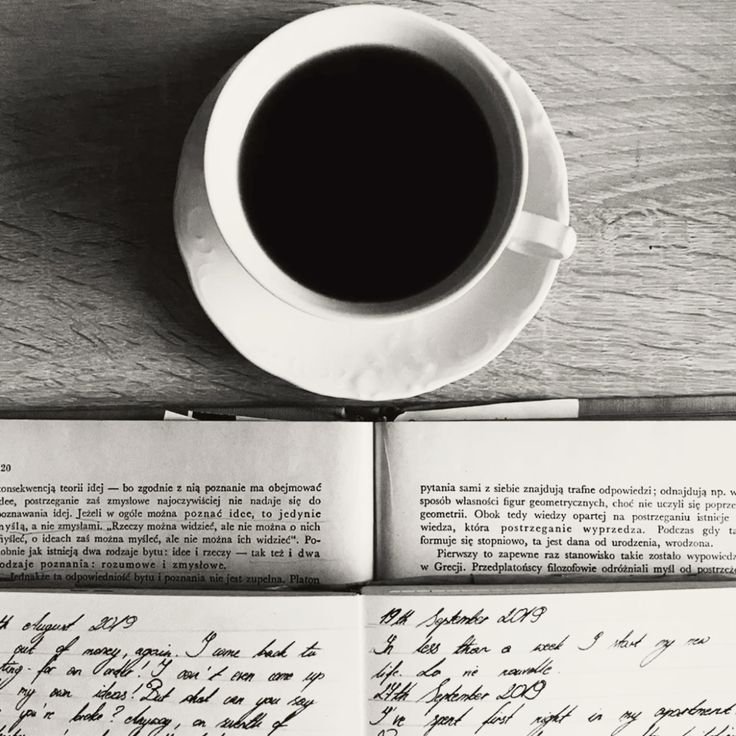 20
konsekwencją teorii idej — bo zgodnie z nią poznanie ma obejmować
idee, postrzeganie zaś zmysłowe najoczywiściej nie nadaje się do
poznawania idej. Jeżeli w ogóle można poznać idee, to jedynie
myślą, a nie zmysłami. „Rzeczy można widzieć, ale nie można o nich
myśleć, o ideach zaś można myśleć, ale nie można ich widzieć“. Po-
dobnie jak istnieją dwa rodzaje bytu: idee i rzeczy — tak też i dwa
rodzaje poznania: rozumowe i zmysłowe.
Jednakże ta odpowiedniość bytu i poznania nie jest zupełna. Platon
pytania sami z siebie znajdują trafne odpowiedzi; odnajdują np. w
sposób własności figur geometrycznych, choć nie uczyli się poprze
geometrii. Obok tedy wiedzy opartej na postrzeganiu istnieje
wiedza, która postrzeganie wyprzedza. Podczas gdy ta
formuje się stopniowo, ta jest dana od urodzenia, wrodzona.
Pierwszy to zapewne raz stanowisko takie zostało wypowiedz
w Grecji. Przedplatońscy filozofowie odróżniali myśl od postrzeże
th August 2019
out of money, again. I came back to
ting for an order! I can't even come up
my own ideas! But what can you say
you're broke? Anyway, on
19th September 2019
In less than a week I start my new
life. La vie nouvelle.
24th September 2019
I've spent first night in my apartment